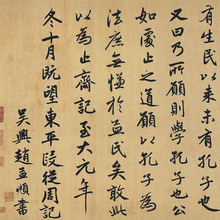 有生民以来未有孔子也
又曰乃所願則學孔子也公
如處止之道願以孔子為
法庶無愧於益民矣敢此
以為止齋記至大元年
冬十月既望東平段從周記
吳興趙孟頫書